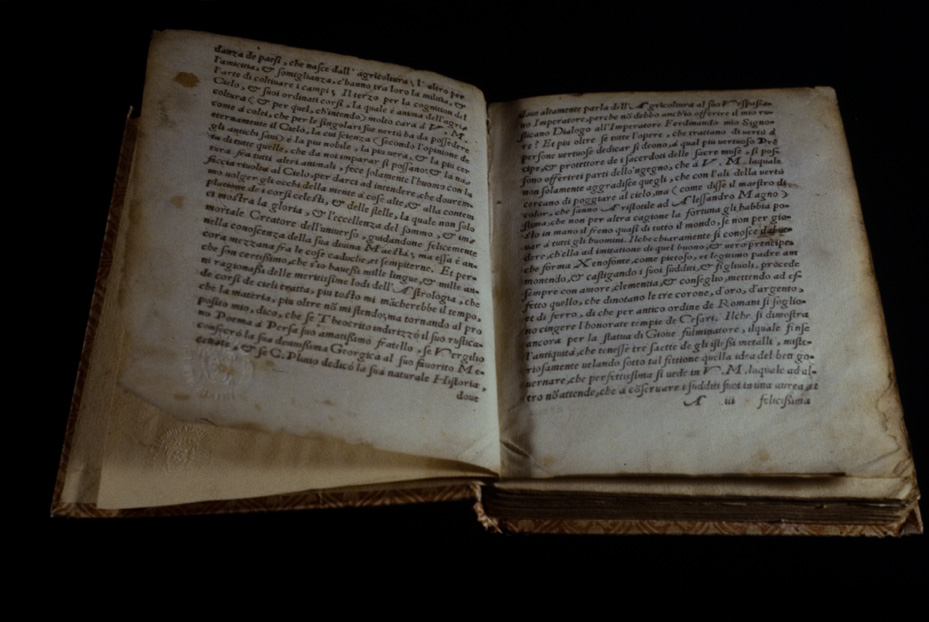 danza de paesi, che nasce dall' agricoltura; l'altro per
l'amicitia, & somiglianza, c'hanno tra loro la militia, &
l'arte di coltivare i campi; Il terzo per la cognition del
Cielo, & suoi ordinati corsi, la quale è anima dell'agri,
coltura (& per quel, ch'intendo) molto cara à V. M.
come à colei, che per le singolari sue vertù ha da possedere
eternamente il Cielo, la cui scienza (secondo l'opinione de
gli antichi savi) è la piu nobile, la piu vera, & la piu cer
ta di tutte quelle, che da noi imparar si possano; & la na,
tura, fra tutti altri animali, fece solamente l'huomo con la
faccia rivolta al Cielo, per darci ad intendere, che dovrem-
mo volger gli occhi della mente à cose alte, & alla contem
platione de i corsi celesti, & delle stelle, la quale non solo
ci mostra la gloria, & l'eccellenza del sommo, & im-
mortale Creatore dell'universo, guidandone felicemente
nella conoscenza della sua divina Maestà; ma essa è an-
cora mezzana fra le cose caduche, et sempiterne. Et per-
che son certissimo, che s'io havessi mille lingue, & mille an-
ni ragionassi delle meritissime lodi dell'Astrologia, che
de corsi de cieli tratta, piu tosto mi mācherebbe il tempo,
che la materia, piu oltre nō mi stendo; ma tornando al pro
posito mio, dico, che se Theocrito indirizzò il suo rustica-
no Poema à Perse suo amatissimo fratello, se Vergilio
consecrò la sua divinissima Georgica al suo favorito Me-
cenate, & se C. Plinio dedicò la sua naturale Historia,
dove
dove altamente parla dell'Agricoltura al suo Vespasia-
no Imperatore, perche nō debbo anch'io offerire il mio ru-
sticano Dialogo all'Imperatore Ferdinando mio Signo-
re? Et piu oltre se tutte l'opere, che trattano di vertù à
persone vertuose dedicar si deono, à qual piu vertuoso Pre
cipe, & protettore de i sacerdoti delle sacre muse, si pos-
sono offerire i parti dell'ngegno, che à V. M. laquale
non solamente aggradisce quegli, che con l'ali della vertù
cercano di poggiare al cielo, ma (come disse il maestro di
color, che sanno Aristotile ad Alessandro Magno)
stima, che non per altra cagione la fortuna gli habbia po-
sto in mano il freno quasi di tutto il mondo, se non per gio-
var à tutti gli huomini. Ilche chiaramente si conosce dal ve-
dere, ch'ella ad imitatione di quel buono, & vero principe,
che forma Xenofonte, come pietoso, et legitimo padre am
monendo, & castigando i suoi sudditi, & figliuoli, procede
sempre con amore, clementia, & conseglio, mettendo ad ef-
fetto quello, che dinotano le tre corone, d'oro, d'argento,
et di ferro, di che per antico ordine de Romani si soglio-
no cingere l'honorate tempie de Cesari. Ilche si dimostra
ancora per la statua di Giove fulminatore, ilquale finse
l'antiquità, che tenesse tre saette de gli istessi metalli, miste-
riosamente velando sotto tal fittione quella idea del ben go-
vernare, che perfettissima si vede in V. M. laquale ad al-
tro nō attende, che à cōservare i sudditi suoi in una aurea, et
A iii felicissima